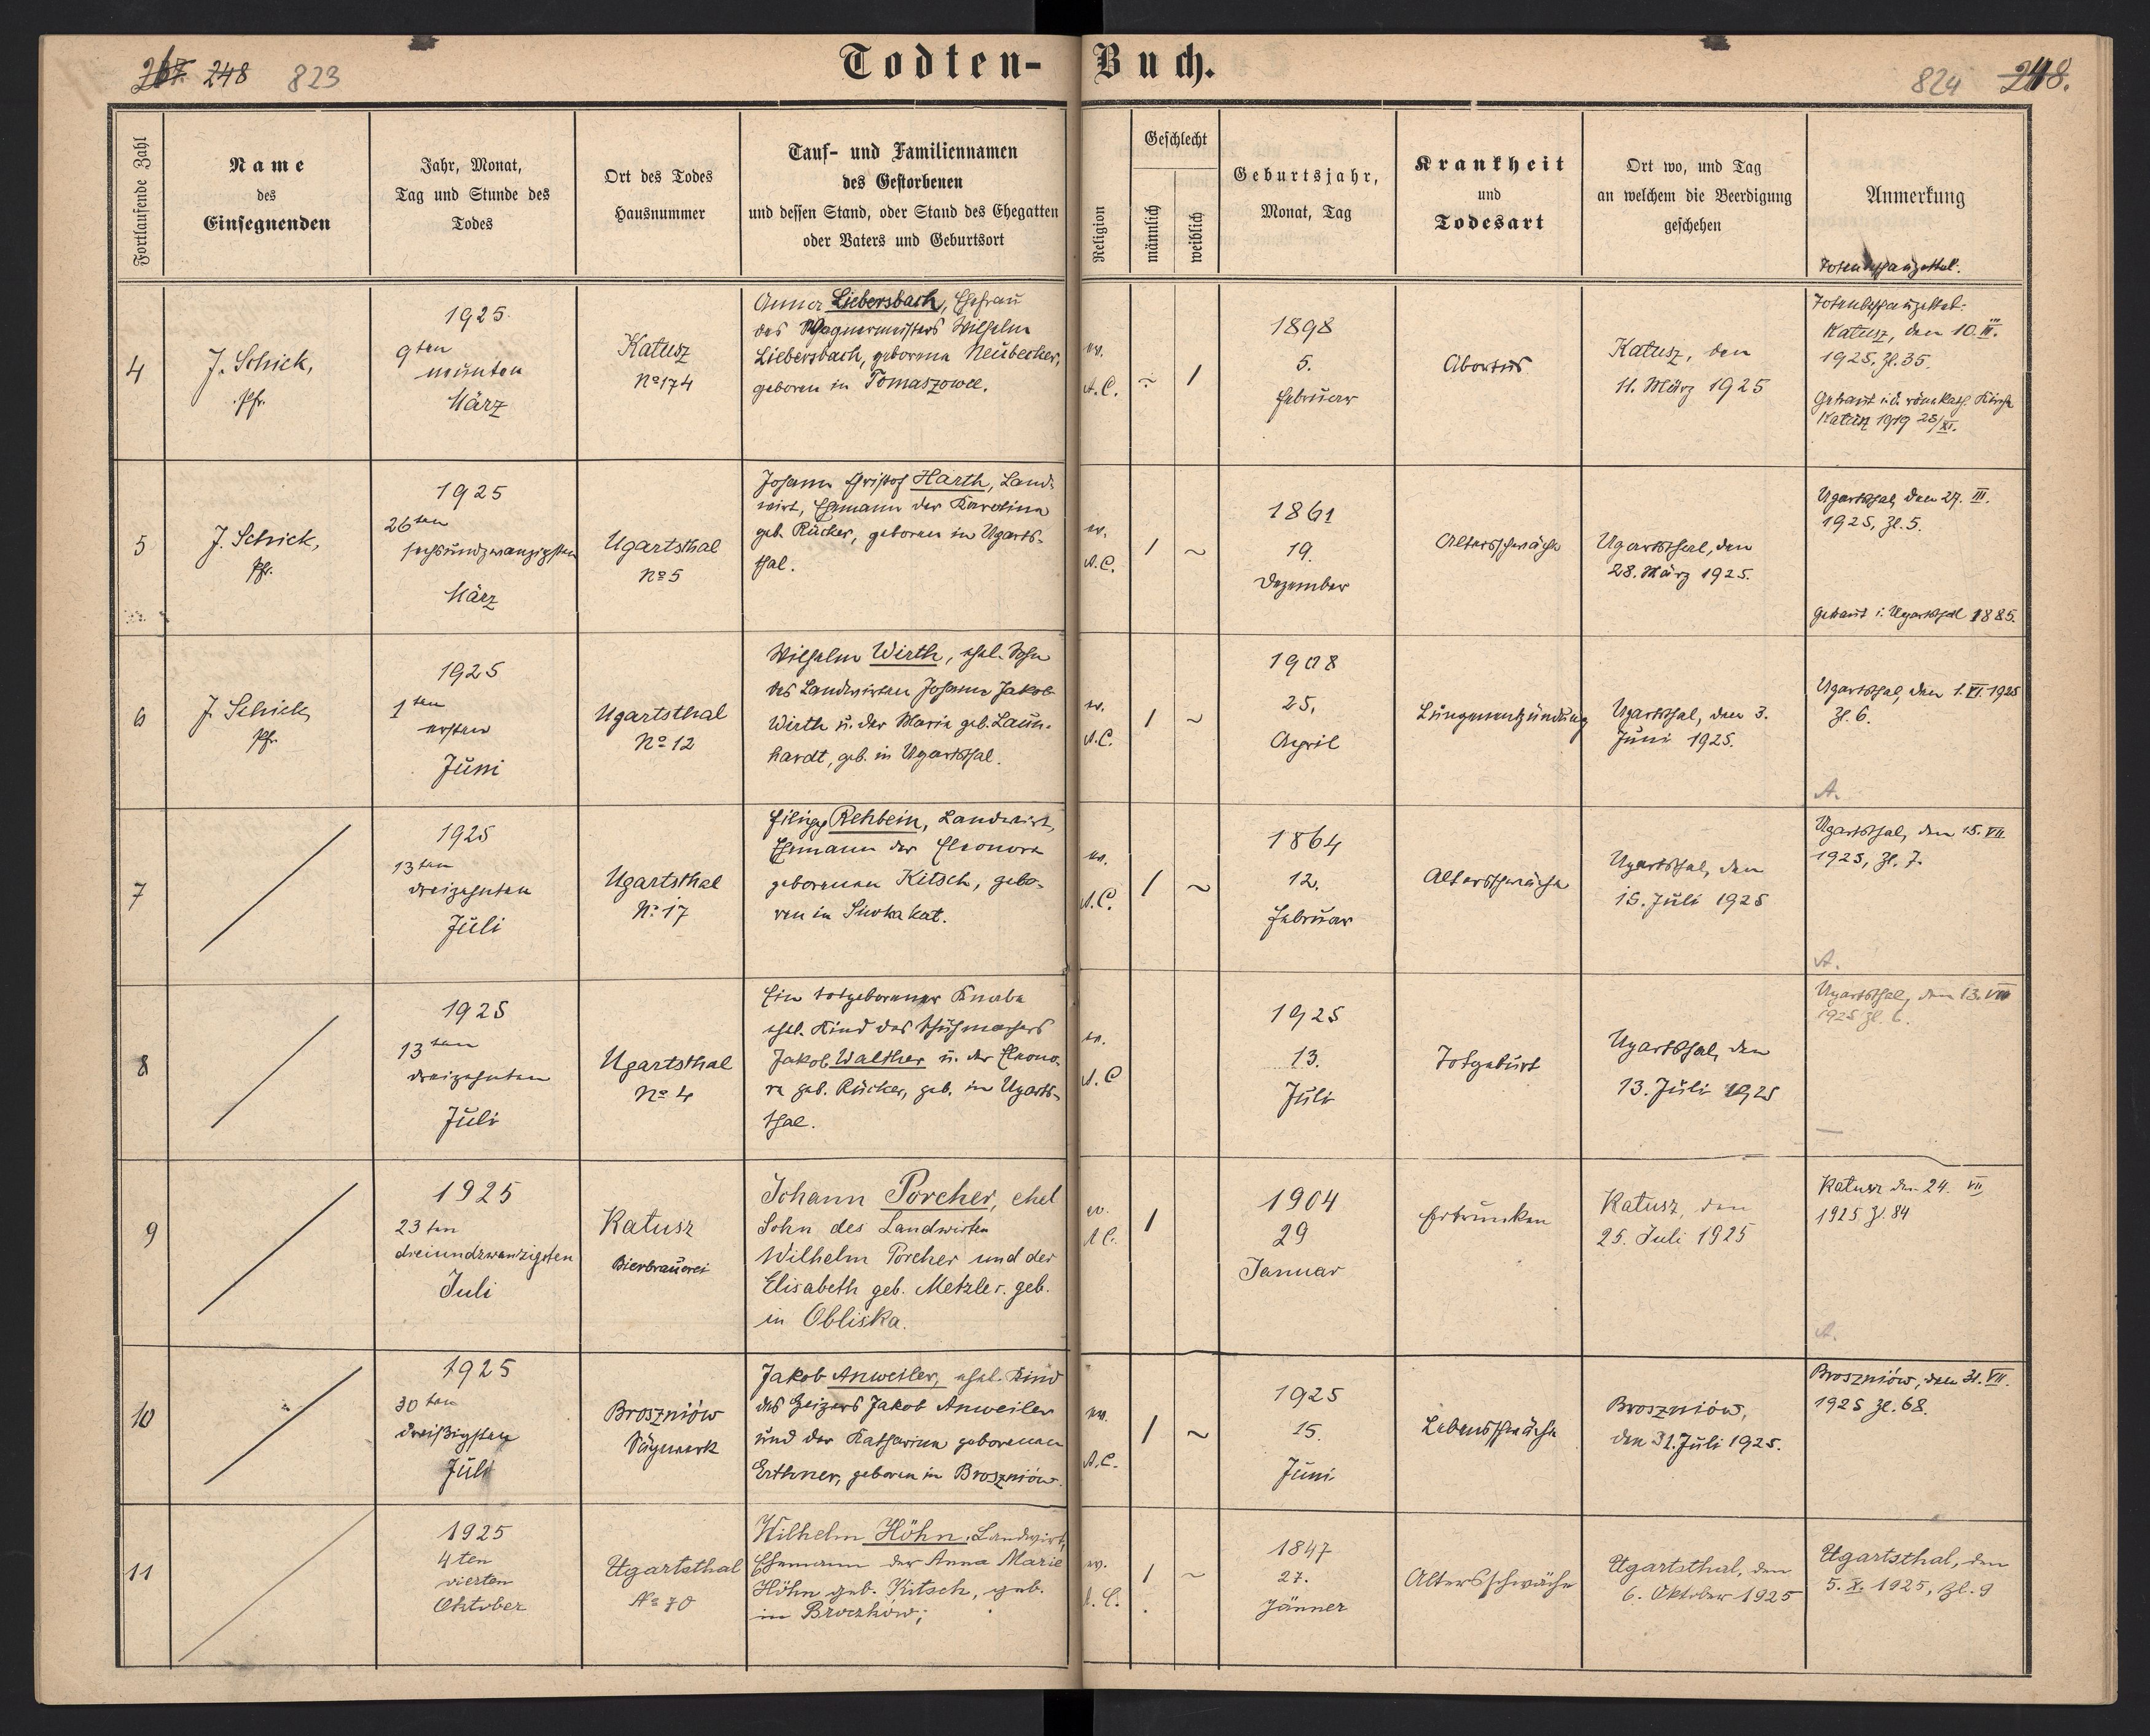 267. 248 823
Todten-Buch.
824 248.
Fortlaufende Zahl
Name
des
Einsegnenden
Jahr, Monat,
Tag und Stunde des
Todes
Ort des Todes
Hausnummer
Tauf- und Familiennamen
des Gestorbenen
und dessen Stand, oder Stand des Ehegatten
oder Vaters und Geburtsort
Religion
Geschlecht
männlich
weiblich
Geburtsjahr,
Monat, Tag
Krankheit
und
Todesart
Ort wo, und Tag
an welchem die Beerdigung
geschehen
Anmerkung
Totenbeschauzettel.
4
J. Schick,
Pfr.
1925.
9ten
neunten
März
Katusz
No 174
Anna Liebersbach, Ehefrau
des Wagnermeisters Wilhelm
Liebersbach, geborene Neubecker,
geboren in Tomaszowce.
ev.
A.C.
~ 1
1898
5.
Februar
Abortus
Katusz, den
11. März 1925
Totenbeschauzettel:
Katusz, den 10. III.
1925. Zl. 35.
Getraut i. d. röm. kath. Kirche
Katusz 1919 25/XI.
5
J. Schick,
Pfr.
1925
26ten
sechsundzwanzigsten
März
Ugartsthal
No 5
Johann Christof Harth, Land-
wirt, Ehemann der Karolina
geb. Rücker, geboren in Ugarts-
thal.
ev.
A.C.
1 ~
1861
19.
Dezember
Altersschwäche
Ugartsthal, den
28. März 1925.
Ugartsthal, den 27. III.
1925, Zl. 5.
Getraut i. Ugartsthal 1885.
6
J. Schick,
Pfr.
1925
1ten
ersten
Juni
Ugartsthal
No 12
Wilhelm Wirth, ehel. Sohn
des Landwirten Johann Jakob
Wirth u. der Maria geb. Laun-
hardt, geb. in Ugartsthal.
ev.
A.C.
1 ~
1908
25.
April
Lungenentzündung
Ugartsthal, den 3.
Juni 1925.
Ugartsthal, den 1. VI. 1925
Zl. 6.
A.
7
1925
13ten
dreizehnten
Juli
Ugartsthal
No 17
Filipp Rehbein, Landwirt,
Ehemann der Eleonora
geborenen Kitsch, gebo-
ren in Siwka kat.
ev.
A.C.
1 ~
1864
12.
Februar
Altersschwäche
Ugartsthal, den
15. Juli 1925
Ugartsthal, den 15. VII.
1925, Zl. 7.
A.
8
1925
13ten
dreizehnten
Juli
Ugartsthal
No 4
Ein totgeborener Knabe
ehel. Kind des Schuhmachers
Jakob Walther u. der Eleono-
ra geb. Rücker, geb. in Ugarts-
thal.
ev.
A.C
1925
13.
Juli
Totgeburt
Ugartsthal, den
13. Juli 1925
Ugartsthal, den 13. VII
1925 Zl. 6.
9
1925
23ten
dreiundzwanzigsten
Juli
Katusz
Bierbrauerei
Johann Porcher, ehel
Sohn des Landwirten
Wilhelm Porcher und der
Elisabeth geb. Metzler. geb.
in Obliska.
ev.
A C.
1
1904
29
Januar
Ertrunken
Katusz, den
25. Juli 1925
Katusz den 24. VII
1925 Zl. 84
A.
10
1925
30ten
dreißigsten
Juli
Broszniów
Sägewerk
Jakob Anweiler, ehel. Kind
des Heizers Jakob Anweiler
und der Katharina geborenen
Erthner, geboren in Broszniów.
ev.
A.C.
1 ~
1925
15.
Juni
Lebensschwäche
Broszniów,
den 31. Juli 1925.
Broszniów, den 31. VII.
1925 Zl. 68.
11
1925
4ten
vierten
Oktober
Ugartsthal
No 70
Wilhelm Höhn, Landwirt,
Ehemann der Anna Marie
Höhn geb. Kitsch, geb.
in Broczków;
ev.
A. C.
1 ~
1847
27.
Jänner
Altersschwäche
Ugartsthal, den
6. Oktober 1925
Ugartsthal, den
5. X. 1925, Zl. 9